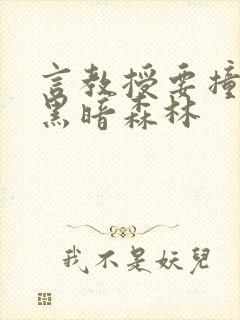 言教授要撞
黑暗森林
我不是妖兒